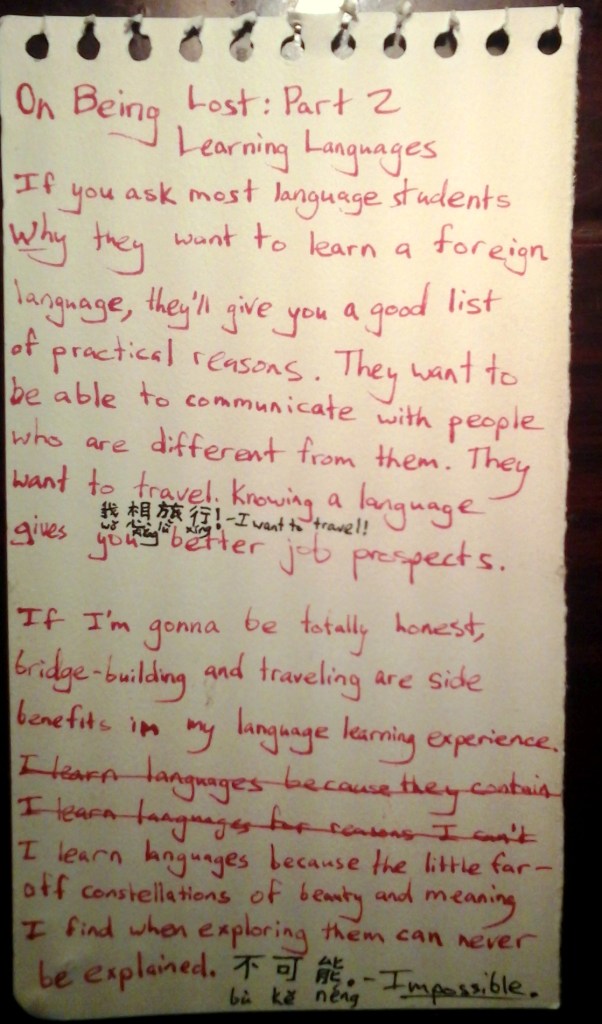 On Being Lost: Part 2
Learning Languages
If you ask most language students
Why they want to learn a foreign
language, they'll give you a good list
of practical reasons. They want to
be able to communicate with people
who are different from them. They
want to travel. Knowing a language
我想旅行! - I want to travel!
wǒ xiǎng lǚ xíng
gives you better job prospects.
If I'm gonna be totally honest,
bridge-building and traveling are side
benefits in my language learning experience.
I learn languages because they contain
I learn languages for reasons I can't
I learn languages because the little far-
off constellations of beauty and meaning
I find when exploring them can never
be explained. 不可能. - Impossible.
bù kě néng